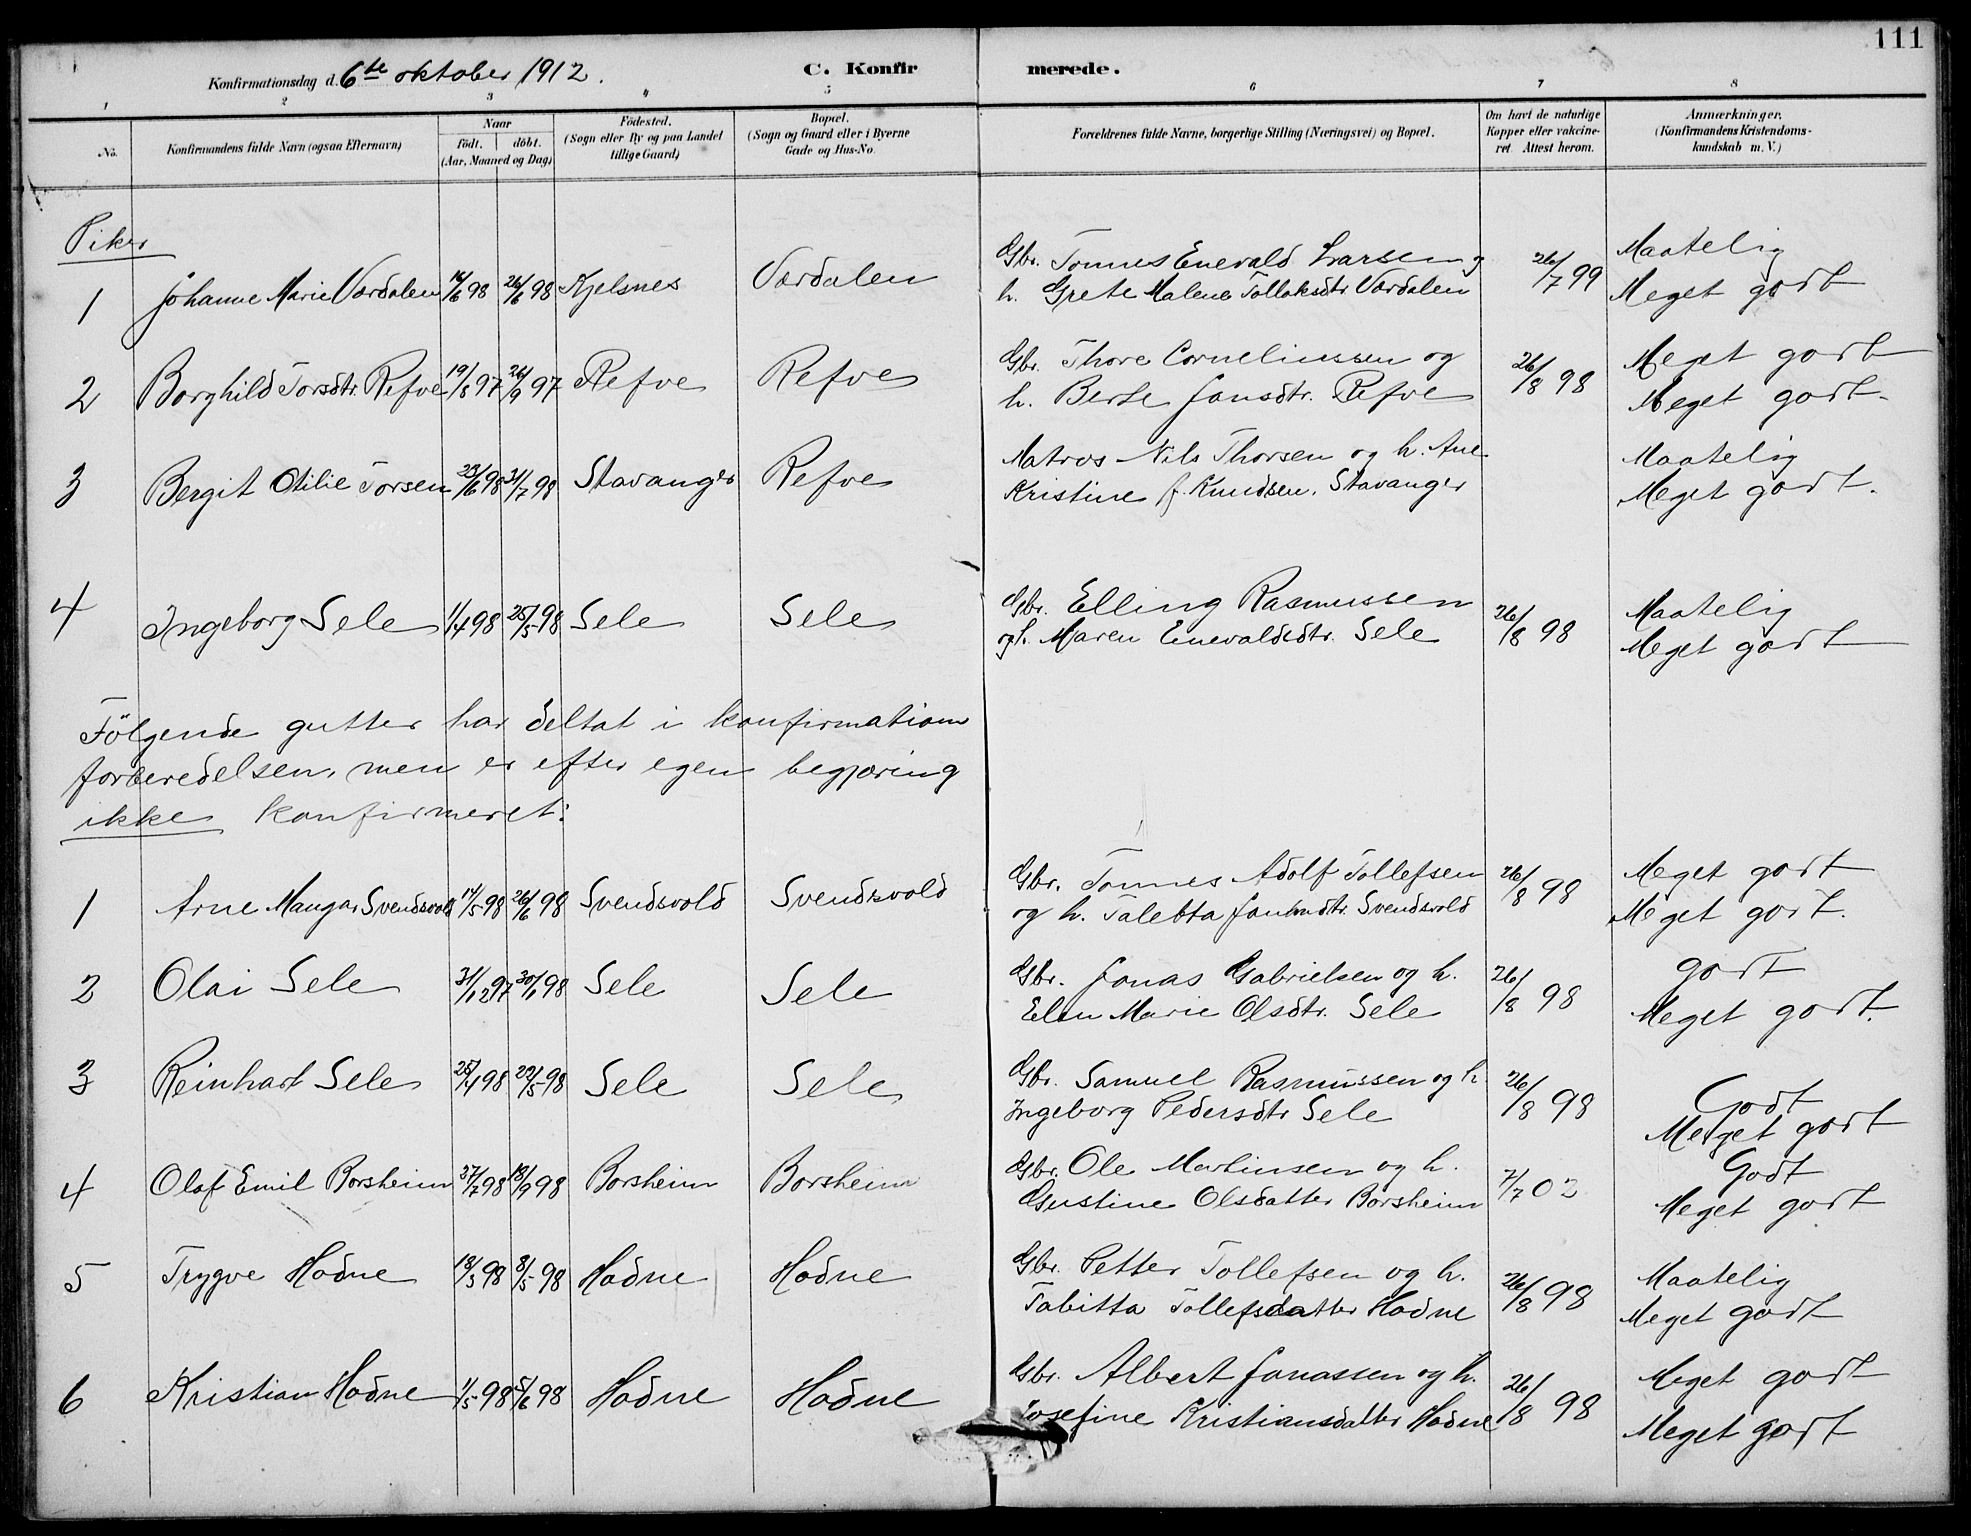 111
Konfirmationsdag d. 6te oktober 1912.
C. Konfirmerede.
1 2 3 4 5 6 7 8
No. Konfirmandens fulde Navn (ogsaa Efternavn)
Naar født. døbt. (Aar, Maaned og Dag)
Fødested. (Sogn eller By og paa Landet tillige Gaard)
Bopæl. (Sogn og Gaard eller i Byerne Gade og Hus-No.
Forældrenes fulde Navne, borgerlige Stilling (Næringsvei) og Bopæl.
Om havt de naturlige Kopper eller vakcineret. Attest herom.
Anmærkninger. (Konfirmandens Kristendomskundskab m. V.)
Piker
1 Johanne Marie Vardalen 16/6 98 26/6 98 Kjelsnes Vardalen Gbr. Tønnes Enevald Larsen og
h. Grete Malene Tollaksdtr. Vardalen 26/7 99 Maatelig
Meget godt
2 Borghild Torsdtr. Refve 19/8 97 26/9 97 Refve Refve Gbr. Thore Corneliussen og
h. Berte Jansdtr. Refve 26/8 98 Meget godt
Meget godt.
3 Bergit Otilie Torsen 23/6 98 31/7 98 Stavanger Refve Matros Nils Thorsen og h. Ane
Kristine f. Knudsen. Stavanger Maatelig
Meget godt.
4 Ingeborg Sele 1/4 98 25/5 98 Sele Sele Gbr. Elling Rasmussen
og h. Maren Enevaldsdtr. Sele 26/8 98 Maatelig
Meget godt
Følgende gutter har deltat i konfirmations
forberedelsen, men er efter egen begjæring
ikke konfirmeret:
1 Arne Mangar Svendsvold 14/5 98 26/6 98 Svendsvold Svendsvold Gbr. Tønnes Adolf Tollefsen
og h. Talette Svendsvold 26/8 98 Meget godt
Meget godt.
2 Olai Sele 31/12 97 30/1 98 Sele Sele Gbr. Jonas Gabrielsen og h.
Elen Marie Olsdtr. Sele 26/8 98 godt
Meget godt.
3 Reinhart Sele 25/4 98 22/5 98 Sele Sele Gbr. Samuel Rasmussen og h.
Ingeborg Pedersdtr Sele 26/8 98 Godt
Meget godt
4 Olaf Emil Borsheim 27/7 98 18/9 98 Borsheim Borsheim Gbr. Ole Martinsen og h.
Gustine Olsdatter Borsheim 7/7 02 Godt
Meget godt
5 Trygve Hodne 18/3 98 8/5 98 Hodne Hodne Gbr. Petter Tollefsen og h.
Tabitta Tollefsdatter Hodne 26/8 98 Maatelig
Meget godt
6 Kristian Hodne 1/5 98 5/6 98 Hodne Hodne Gbr. Albert Jonassen og h.
Josefine Kristiansdatter Hodne 26/8 98 Meget godt
Meget godt